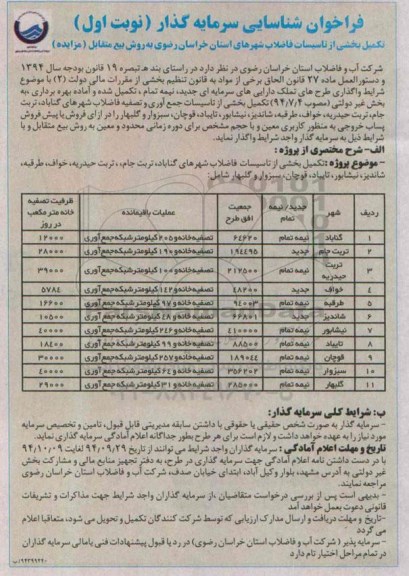 فراخوان شناسایی سرمایه گذار (نوبت اول)
تکمیل بخشی از تاسیسات فاضلاب شهرهای استان خراسان رضوی به روش بیع متقابل (مزایده)
شرکت آب و فاضلاب استان خراسان رضوی در نظر دارد در راستای بند هـ تبصره ۱۹ قانون بودجه سال ۱۳۹۴
و دستورالعمل ماده ۲۷ قانون الحاق برخی از مواد به قانون تنظیم بخشی از مقررات مالی دولت (۲) با موضوع
شرایط واگذاری طرح های تملک دارایی های سرمایه ای جدید، نیمه تمام ، تکمیل شده و آماده بهره برداری ،به
بخش غیر دولتی (مصوب ۹۴/۷/۴) تکمیل بخشی از تاسیسات جمع آوری و تصفیه فاضلاب شهرهای گناباد، تربت
جام، تربت حیدریه، خواف، طرقبه، شاندیز، نیشابور، تایباد، قوچان، سبزوار و گلبهار را در ازای فروش یا پیش فروش
پساب خروجی به منظور کاربری معین و با حجم مشخص برای دوره زمانی محدود و معین به روش بیع متقابل و با
شرایط ذیل به سرمایه گذار واجد شرایط واگذار نماید.
الف- شرح مختصری از پروژه :
- موضوع پروژه :تکمیل بخشی از تاسیسات فاضلاب شهرهای گناباد، تربت جام، ، تربت حیدریه، خواف، طرقبه،
شاندیز، نیشابور، تایباد، قوچان، سبزوار و گلبهار شامل:
ردیف شهر جدید/ نیمه تمام جمعیت افق طرح عملیات باقیمانده ظرفیت تصفیه خانه متر مکعب در روز
۱ گناباد نیمه تمام ۶۴۶۲۰ تصفیه خانه و ۲۰۵ کیلومتر شبکه جمع آوری ۱۲۰۰۰
۲ تربت جام جدید ۱۹۴۴۹۵ تصفیه خانه و ۱۹۰ کیلومتر شبکه جمع آوری ۲۸۰۰۰
۳ تربت حیدریه نیمه تمام ۲۱۲۵۰۰ تصفیه خانه و ۱۰۰ کیلومتر شبکه جمع آوری ۳۹۰۰۰
۴ خواف جدید ۴۸۲۰۰ تصفیه خانه و ۱۴۲ کیلومتر شبکه جمع آوری ۵۷۸۴
۵ طرقبه نیمه تمام ۹۴۰۰۲ تصفیه خانه و ۹۷ کیلومتر شبکه جمع آوری ۱۶۶۰۰
۶ شاندیز جدید ۲۶۶۸۰۱ تصفیه خانه و ۴۸ کیلومتر شبکه جمع آوری ۱۰۵۰۰
۷ نیشابور نیمه تمام ۴۱۰۰۰۰ تصفیه خانه و ۲۴۶ کیلومتر شبکه جمع آوری ۴۰۰۰۰
۸ تایباد نیمه تمام ۸۸۵۰۰ تصفیه خانه و ۹۹ کیلومتر شبکه جمع آوری ۱۸۴۰۰
۹ قوچان نیمه تمام ۱۸۹۰۴۴ تصفیه خانه و ۲۵۷ کیلومتر شبکه جمع آوری ۳۰۰۰۰
۱۰ سبزوار نیمه تمام ۳۵۶۲۰۲ تصفیه خانه و ۶۴ کیلومتر شبکه جمع آوری ۴۰۰۰۰
۱۱ گلبهار نیمه تمام ۲۸۵۰۰۰ تصفیه خانه و ۳۱ کیلومتر شبکه جمع آوری ۲۹۰۰۰
ب: شرایط کلی سرمایه گذار:
- سرمایه گذار به صورت شخص حقیقی یا حقوقی با داشتن سابقه مدیریتی قابل قبول، تامین و تخصیص سرمایه
مورد نیاز را به عهده خواهد داشت و لازم است برای هر طرح بطور جداگانه اعلام آمادگی نماید.
تاریخ و مهلت اعلام آمادگی : سرمایه گذاران واجد شرایط می توانند از تاریخ ۹۴/۰۹/۲۹ لغایت ۹۴/۱۰/۰۹
با در دست داشتن نامه اعلام آمادگی جهت سرمایه گذاری در طرح، به دفتر تجهیز منابع مالی و مشارکت بخش
غیر دولتی به آدرس مشهد، بلوار وکیل آباد، ابتدای خیابان صدف، شرکت آب و فاضلاب استان خراسان رضوی
مراجعه نمایند.
- بدیهی است پس از بررسی درخواست متقاضیان ،از سرمایه گذاران واجد شرایط جهت مذاکرات و تشریفات
قانونی دعوت بعمل خواهد آمد
-تاریخ و مهلت دریافت و ارسال مدارک ارزیابی که توسط شرکت کنندگان تکمیل و تحویل می شود، متعاقبا اعلام
می گردد
- سرمایه پذیر ( شرکت آب و فاضلاب استان خراسان رضوی) در رد یا قبول پیشنهادات فنی یا مالی سرمایه گذاران
در تمام مراحل اختیار تام دارد